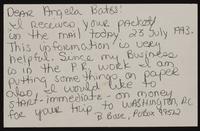 Dear Angela Batis!
I received your packet
in the mail today 23 July 1993.
This information is very
helpful. Since my Business
is in the P.R. work I am
putting some things on paper
also, I would like to
START-immediate-on money
for your trip to WASHINGTON, D.C.
B Base, PoBox 99522